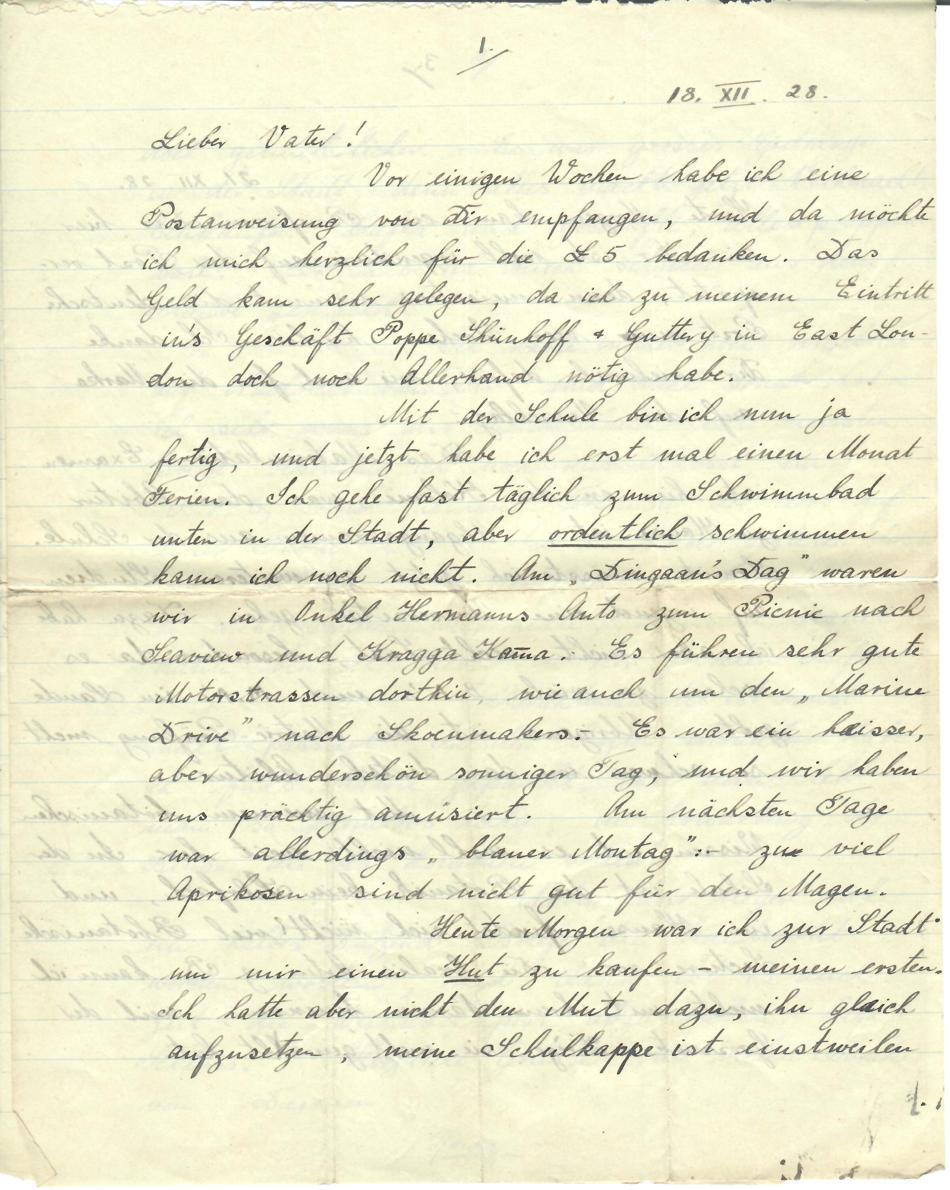 1.
18. XII. 28.
Lieber Vater!
Vor einigen Wochen habe ich eine
Postanweisung von Dir empfangen, und da möchte
ich mich herzlich für die £ 5 bedanken. Das
Geld kam sehr gelegen, da ich zu meinem Eintritt
in's Geschäft Poppe Shünhoff & Guttery in East Lon-
don doch noch Allerhand nötig habe.
Mit der Schule bin ich nun ja
fertig, und jetzt habe ich erst mal einen Monat
Ferien. Ich gehe fast täglich zum Schwimmbad
unten in der Stadt, aber ordentlich schwimmen
kann ich noch nicht. Am „Dingaan's Dag" waren
wir in Onkel Hermanns Auto zum Picnic nach
Seaview und Kragga Kama. Es führen sehr gute
Motorstrassen dorthin, wie auch um den „Marine
Drive" nach Skoenmakers:- Es war ein heisser,
aber wunderschön sonniger Tag, und wir haben
uns prächtig amüsiert. Am nächsten Tage
war allerdings „blauer Montag":- zu viel
Aprikosen sind nicht gut für den Magen.
Heute Morgen war ich zur Stadt
um mir einen Hut zu kaufen – meinen ersten.
Ich hatte aber nicht den Mut dazu, ihn gleich
aufzusetzen, meine Schulkappe ist einstweilen